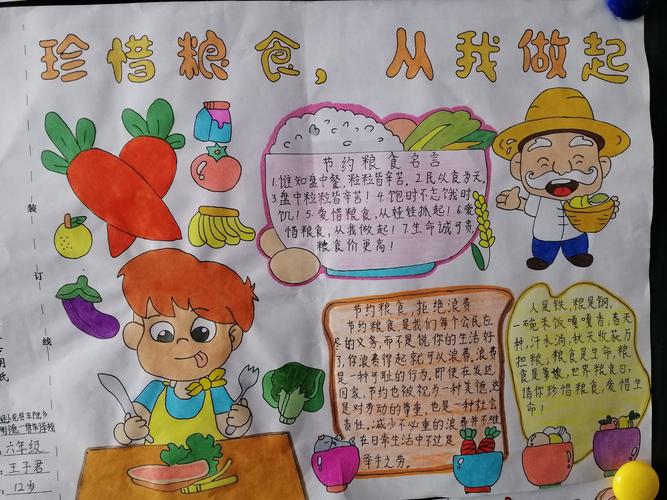 珍惜粮食，从我做起
节约粮食名言
1.谁知盘中餐,粒粒皆辛苦。2.民以食为天。
3.盘中粒粒皆辛苦！4.饱时不忘饿时
饥！5.爱惜粮食,从娃娃抓起！6.爱
惜粮食,从我做起！7.生命诚可贵,
粮食价更高！
节约粮食,拒绝浪费
节约粮食是我们每个公民应
尽的义务,而不是说你的生活好
了,你浪费得起就可以浪费,浪费
是一种可耻的行为。即使在发达
国家,节约也被视为一种美德。这
是对劳动的尊重,也是一种社会
责任。减少不必要的浪费并不难
在日常生活中不过是
举手之劳。
人是铁,粮是钢,
一碗米饭嘎嘎香,春天
种,汗水淌,秋天收获万
担粮,粮食是生命,粮
食是尊严,世界粮食日,
请你珍惜粮食,爱惜生
命！
装
订
线
用
纸
六年级
王子君
12岁